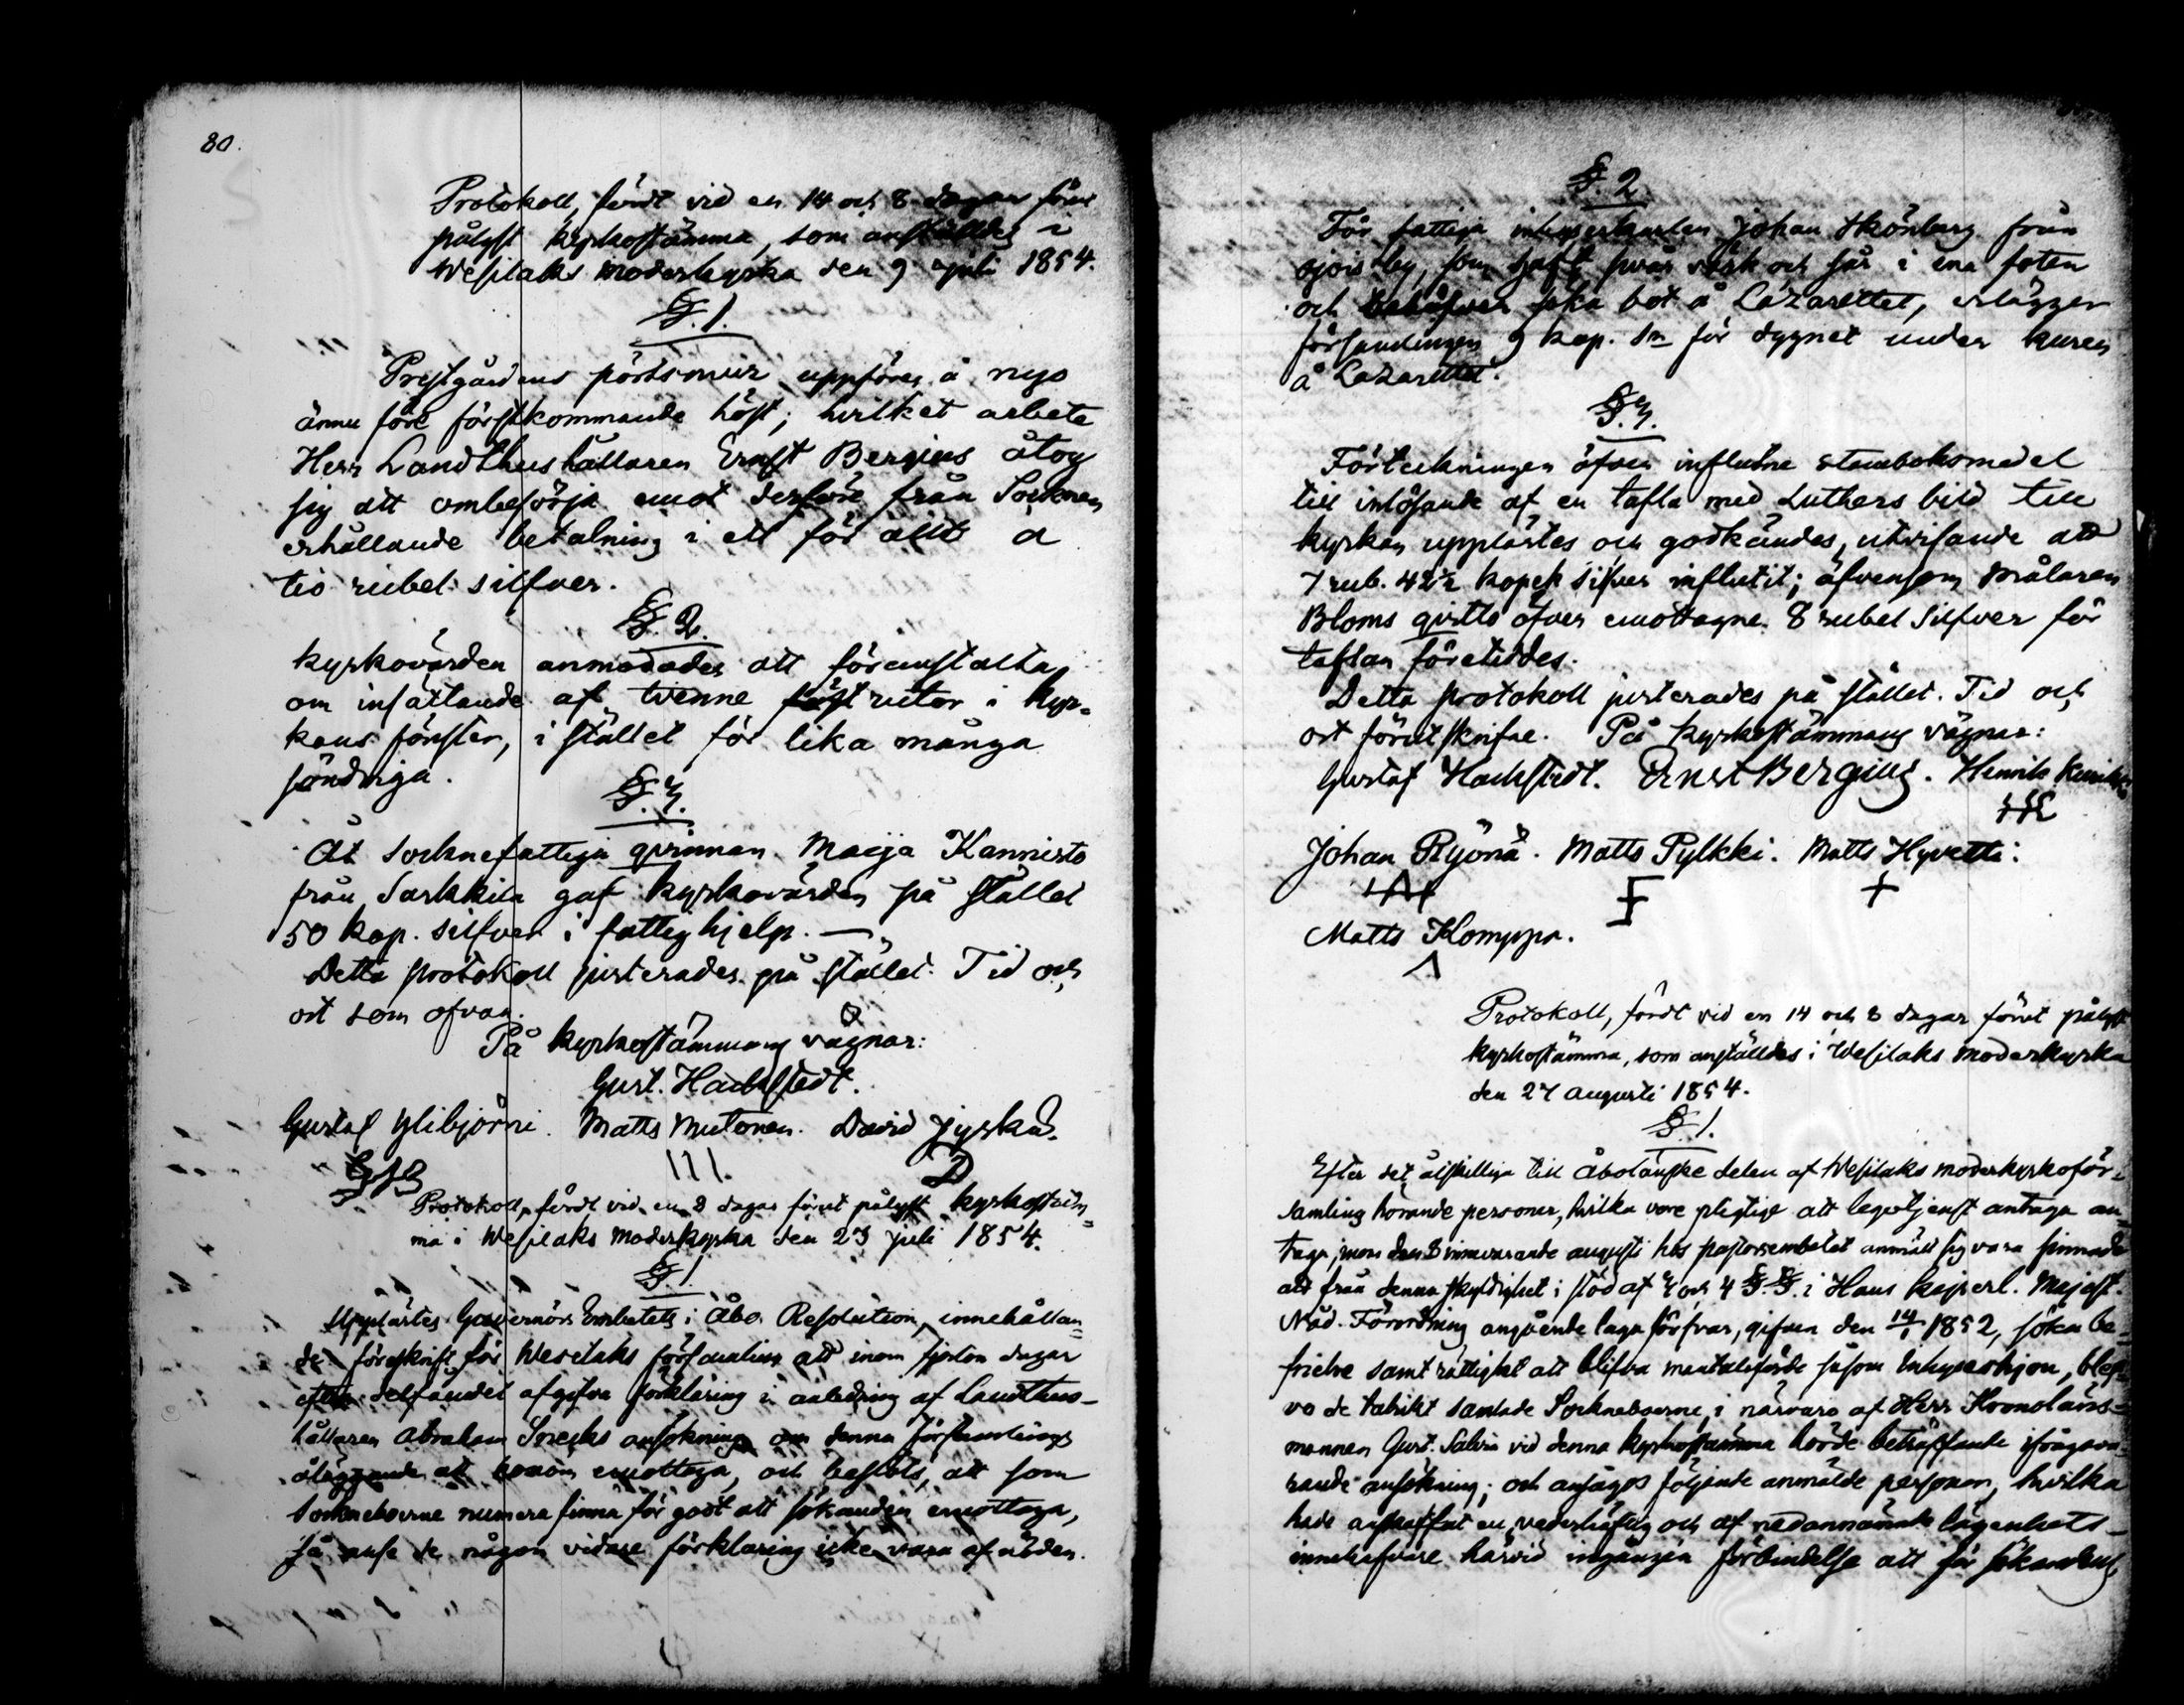 80.
Protokoll, fördt vid en 14 och 8 dagar förut
pålyst kyrkostämma, som anställdes i
Wesilaks moderkyrka den 9 Juli 1854.
§. 1.
Prestgårdens pörtsmur uppföres å nyo
ännu före förstkommande höst; hvilket arbete
Herr Landthushållaren Ernst Bergius åtog
sig att ombesörja emot derföre från Socknen
erhållande betalning i ett för allt a
tio rubel silfver.
§. 2.
Kyrkovärden anmodades att föranstalta
om insättande af tvenne rutor i kyr=
kans fönster, i stället för lika många
söndriga.
§. 3.
Åt Socknefattiga qvinnan Maija Kannisto
från Sarkkila gaf kyrkovärden på stället
50 kop. silfver i fattighjelp. —
Detta protokoll justerades på stället. Tid och
ort som ofvan.
På Kyrkostämmans vägnar:
Gust. Hachstedt.
Gustaf Ylibjörni. Matts Mutonen. David Jyrkä.
Protokoll, fördt vid en 8 dagar förut pålyst kyrkostäm=
ma i Wesilaks Moderkyrka den 23 Juli 1854.
§. 1.
Upplästes Guvernörs Embetets i Åbo Resolution, innehållan=
de föreskrift för Wesilaks församling att inom fjorton dagar
efter delfåendet afgifva förklaring i anledning af Landthus-
hållaren Abraham ansökning om denna församlings
åläggande att honom emottaga, och beslöts, att som
Sockneboerne numera finna för godt att sökanden emottaga,
så anse de någon vidare förklaring icke vara af nöden.
§. 2.
För fattiga inhyseskarlen Johan Skönberg från
by, som haft svår värk och sår i ena foten
och behöfver söka bot å Lazarettet, erlägger
församlingen 9 kop. Sm för dygnet under kuren
å Lazarettet.
§. 3.
Förteckningen öfver influtne stamboksmedel
till inlösande af en tafla med Luthers bild till
kyrkan upplästes och godkändes, utvisande att
7 rub. 42½ kopek silfver influtit; äfvensom Målaren
Bloms qvitto öfver emottagne 8 rubel Silfver för
taflan företeddes.
Detta protokoll justerades på stället. Tid och
ort förutskrifne. På Kyrkostämmans vägnar:
Gustaf Hachstedt. Ernst Bergius. Henrik
Johan Ryönä. Matts Pylkki. Matts Hyvetti.
Matts Komppa.
Protokoll, fördt vid en 14 och 8 dagar förut pålyst
kyrkostämma, som anställdes i Wesilaks moderkyrka
den 27 Augusti 1854.
§. 1.
Efter det åtskilliga till Åboländske delen af Wesilaks moderkyrkoför=
samling hörande personer, hvilka vore pligtige att legotjenst antaga an=
taga, inom den 8 innevarande augusti hos pastorsembetet anmält sig vara sinnade
att från denna skyldighet i stöd af 3 och 4 §.§. i Hans Kejserl. Majest.
Nåd. Förordning angående laga försvar, gifven den 14/1 1852, söka be=
frielse samt rättighet att blifva mantalsförde såsom Inhyseshjon, blef=
vo de talrikt samlade Sockneboerne, i närvaro af Herr Kronoläns=
mannen Gust. vid denna kyrkostämma hörde beträffande ifrågava=
rande ansökning; och ansågos följande anmälde personer, hvilka
hade anskaffat en vederhäftig och af nedannämnde lägenhets-
innehafvare härvid ingången förbindelse att för sökandens